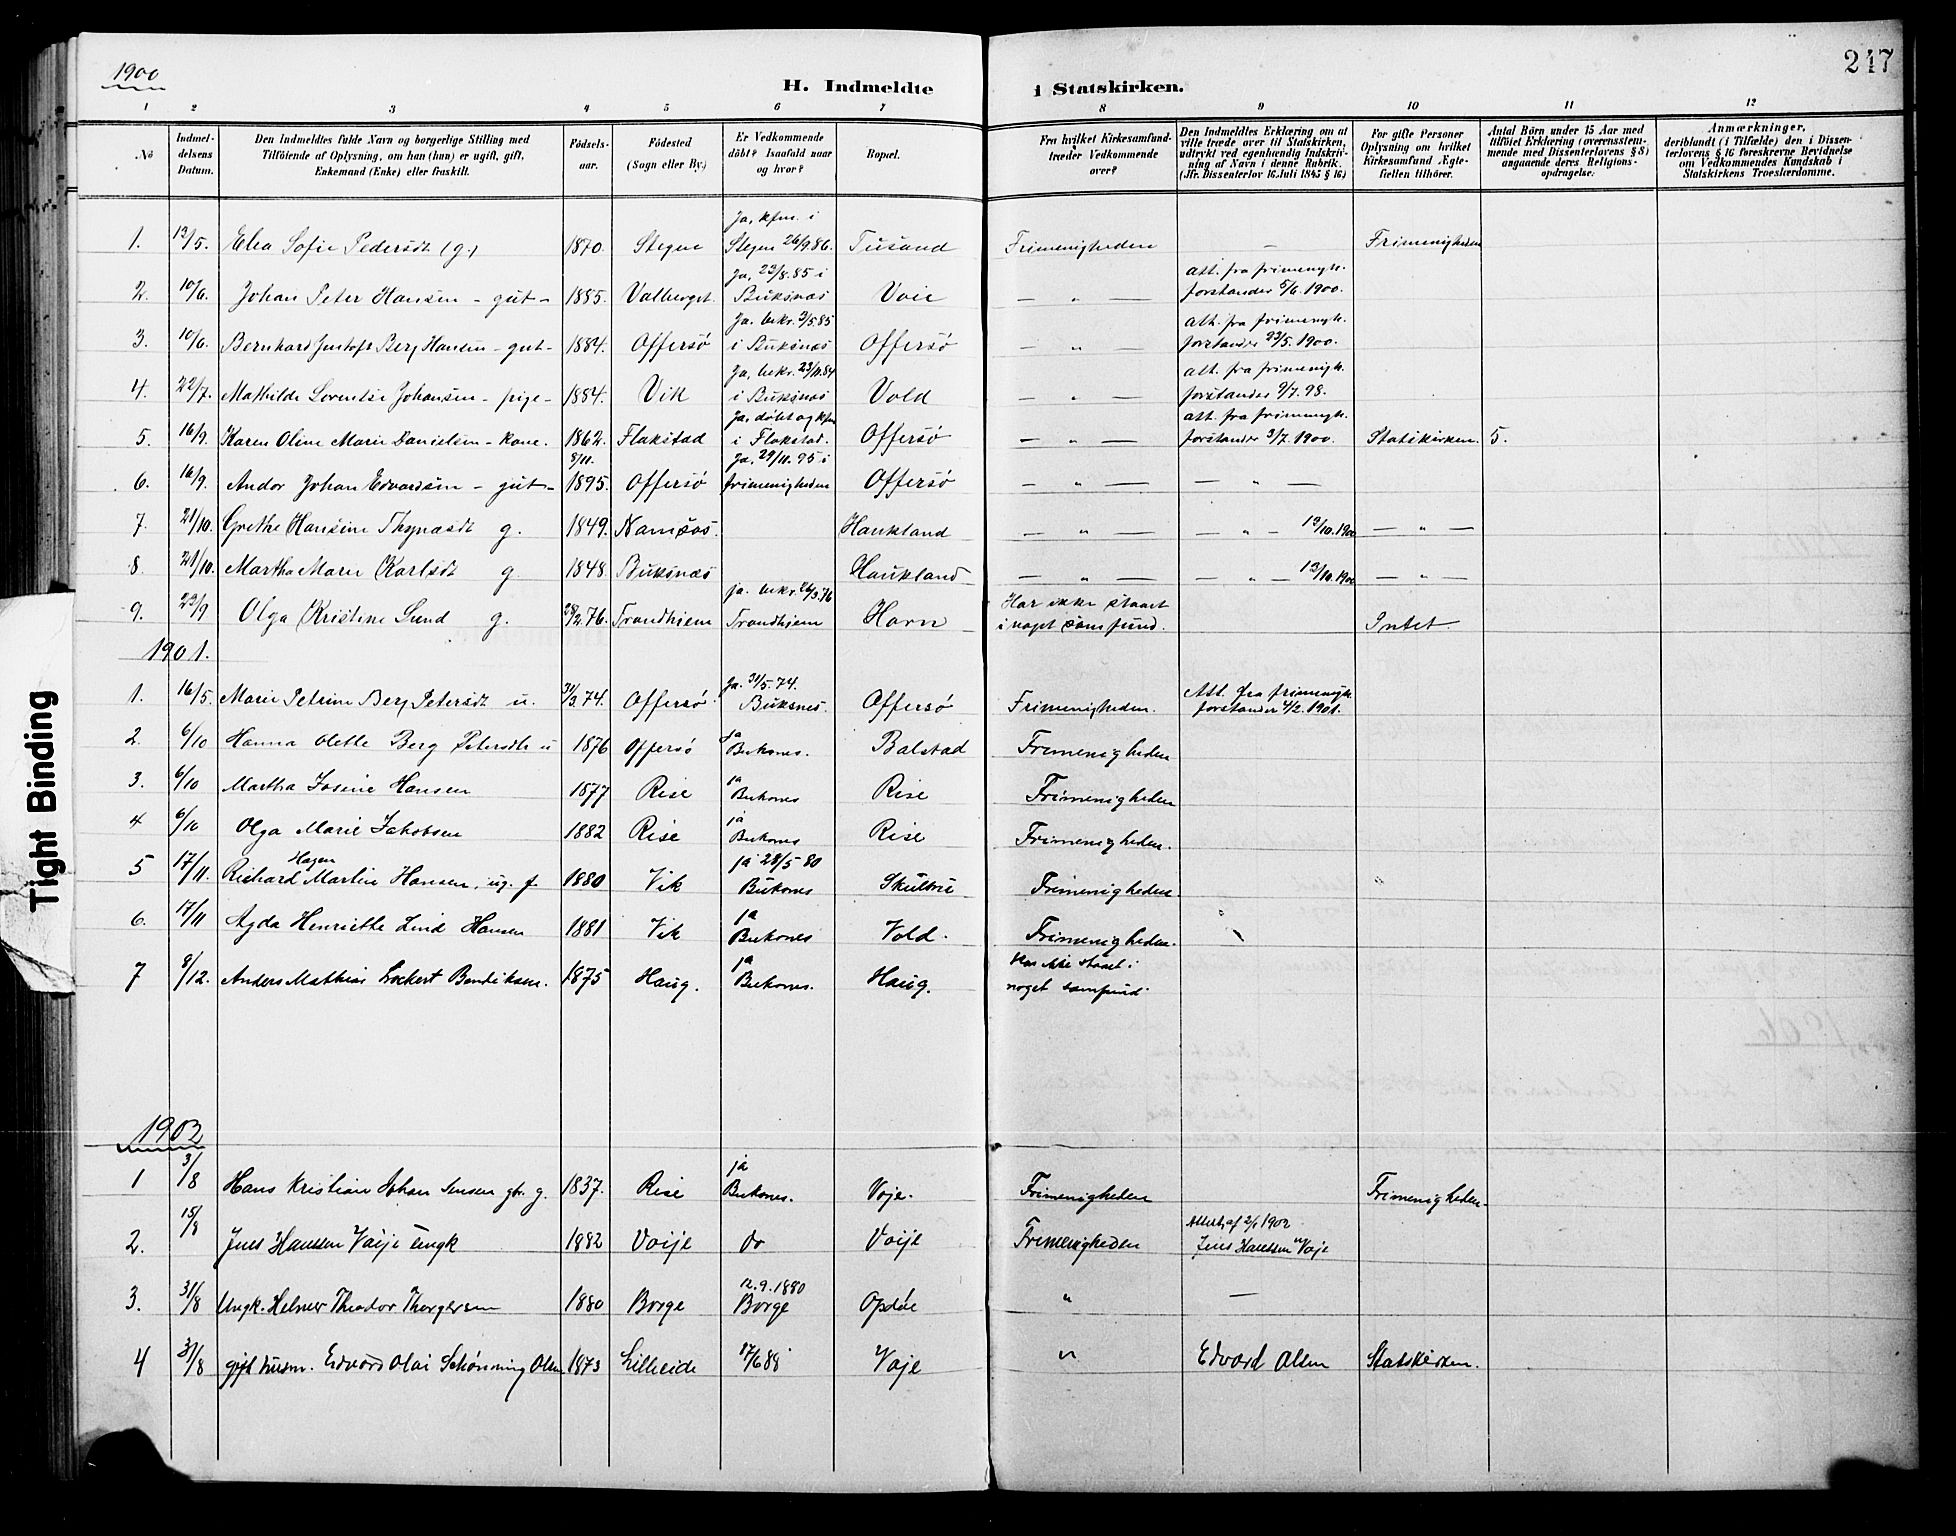 1900
247
H. Indmeldte i Statskirken.
1 2 3 4 5 6 7 8 9 10 11 12
No
Indmel-
delsens
Datum.
Den Indmeldtes fulde Navn og borgerlige Stilling med
Tilföiende af Oplysning, om han (hun) er ugift, gift,
Enkemand (Enke) eller fraskilt.
Födsels-
aar.
Födested
(Sogn eller By.)
Er Vedkommende
döbt? Isaafald naar
og hvor?
Bopæl.
Fra hvilket Kirkesamfund
træder Vedkommende
over?
Den Indmeldtes Erklæring om at
ville træde over til Statskirken,
udtrykt ved egenhændig Indskriv-
ning af Navn i denne Rubrik.
(Jfr. Dissenterlov 16 Juli 1845 § 16)
For gifte Personer
Oplysning om hvilket
Kirkesamfund Ægte-
fællen tilhörer.
Antal Börn under 15 Aar med
tilföiet Erklæring (overensstem-
mende med Dissenterlovens § 8)
angaaende deres Religions-
opdragelse.
Anmærkninger,
deriblandt (i Tilfælde) den i Dissen-
terlovens § 16 foreskrevne Bevidnelse
om Vedkommendes Kundskab i
Statskirkens Troeslærdomme.
Ja, kfm. i
1. 12/5. Elea Sofie Pedersdt (g.) 1870. Stegne Stegn 26/9.86. Tusand Frimenigheden - Frimenigheden
Ja, 23/8.85 i Att. fra frimenigh.
2. 10/6. Johan Peter Hansen - gut - 1885. Valberget. Buksnæs Voie - " - forstander 5/6.1900.
Ja. bekr. 3/5.85 Att. fra frimenigh.
3. 10/6. Bernhard Gustofs Berg Hansen - gut - 1884. Offersö i Buksnæs Offersö - " - forstander 23/5.1900.
Ja, bekr. 23/11.84 Att. fra frimenigh.
4. 22/7. Mathilde Lorentse Johansen - pige - 1884. Vik i Buksnæs Vold - " - forstander 9/7.98.
Ja, döbt og kfm Att. fra frimenigh.
5. 16/9. Karen Oline Marie Danielsen - kone. 1862. Flakstad i Flakstad. Offersö - " - forstander 3/7.1900. Statskirken. 5.
8/11. Ja, 29/11.95 i
6. 16/9. Andor Johan Edvardsen - gut - 1895. Offersö frimenigheden Offersö - " - - " -
7. 21/10. Grethe Hansine Thomasdt g. 1849. Namsos. Haukland - " - - " - 13/10.1900 - " -
8. 21/10. Martha Marie Karlsdt g. 1848. Buksnæs Haukland - " - - " - 13/10.1900 - " -
ja. bekr. 26/3.76 Har ikke staaet
9. 23/9 Olga Kristine Lund g. 28/2.76. Trondhiem Trondhiem Horn i noget samfund. Intet.
1901.
Ja. 31/5.74. Att. fra frimenigh.
1. 16/5. Marie Petrine Berg Petersdt u. 31/3.74. Offersö Buksnes. Offersö Frimenigheden. forstander 4/2.1901.
ja
2. 6/10 Hanna Olette Berg Petersdt u 1876 Offersö Buksnes. Balstad Frimenigheden
ja
3. 6/10 Martha Josine Hansen 1877 Rise Buksnes Rise Frimenigheden
ja
4 6/10 Olga Marie Jakobsen 1882 Rise Buksnes Rise Frimenigheden.
Hagen ja 28/5 80
5 17/11. Richard Martin Hansen, ug. f. 1880 Vik Buksnes Frimenigheden
ja
6. 17/11 Agda Henriette Lind Hansen 1881 Vik Buksnes Vold. Frimenigheden.
ja Har ikke staaet i
7 8/12. Anders Mathias Lockert Bendiksen. 1875 Haug. Buksnes. Haug. noget samfund
1902
ja
1 3/8 Hans Kristian Johan Jensen gbr. g. 1837. Rise Buksnes. Voje. Frimenigheden Frimenigheden.
Attest af 2/6 1902
2. 15/8 Jens Hanssen Voije ungk 1882 Voije do Voije Frimenigheden Jens Hanssen Voje
12.9.1880
3. 31/8 Ungk. Helmer Theodor Thorgersen 1880 Borge Borge Opdöe " -
4 31/8 gift husm. Edvard Olai Schönning Olsen 1873 Lilleeide 17/6 88 Voje " Edvard Olsen Statskirken.
Tight Binding